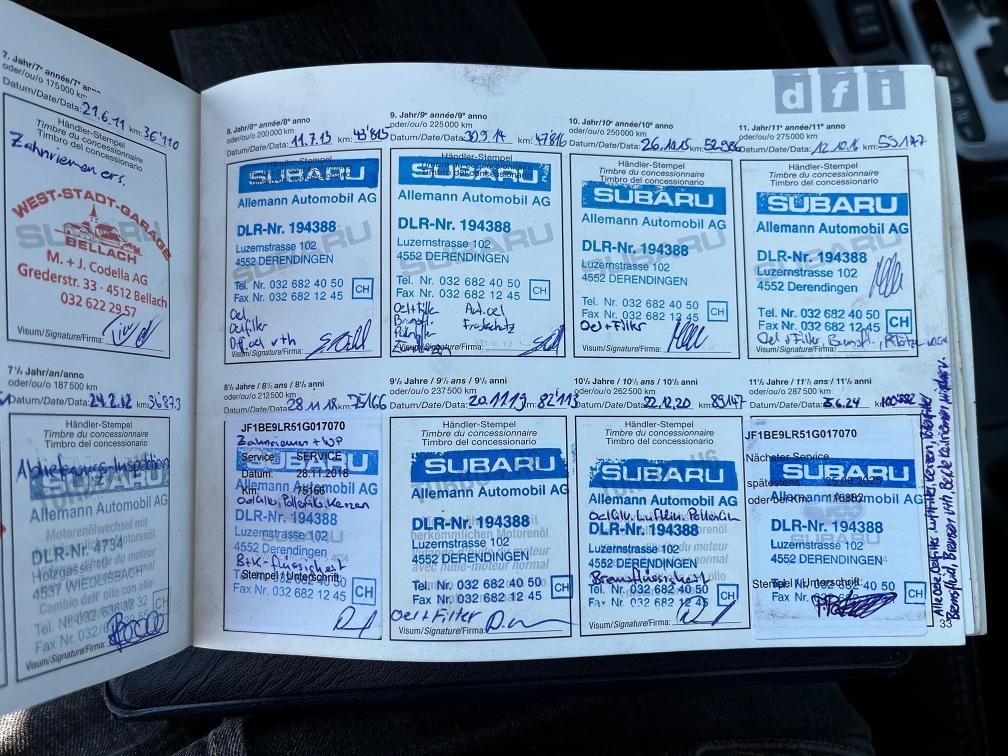 7. Jahr/7e année/7°
oder/ou/o 175 000 km
Datum/Date/Data: 21.6.11 km: 36'110
Händler-Stempel
Timbre du concessionnaire
Timbro del concessionario
Zahnriemen ers.
WEST-STADT-GARAGE
BELLACH
M. + J. Codella AG
Grederstr. 33 · 4512 Bellach
032 622 29 57
Visum/Signature/Firma:
8. Jahr/8e année/8° anno
oder/ou/o 200 000 km
Datum/Date/Data: 11.7.13 km: 43'815
Händler-Stempel
SUBARU
Allemann Automobil AG
DLR-Nr. 194388
Luzernstrasse 102
4552 DERENDINGEN
Tel. Nr. 032 682 40 50
Fax Nr. 032 682 12 45
CH
Oel
Oelfilter
Visum/Signature/Firma:
9. Jahr/9e année/9° anno
oder/ou/o 225 000 km
Datum/Date/Data: 30.9.14 km: 47'816
Händler-Stempel
SUBARU
Allemann Automobil AG
DLR-Nr. 194388
Luzernstrasse 102
4552 DERENDINGEN
Tel. Nr. 032 682 40 50
Fax Nr. 032 682 12 45
CH
Oel+Filter
Frostschutz
Visum/Signature/Firma:
dfi
10. Jahr/10e année/10° anno
oder/ou/o 250 000 km
Datum/Date/Data: 26.10.15 km: 52'986
Händler-Stempel
Timbre du concessionnaire
Timbro del concessionario
SUBARU
Allemann Automobil AG
DLR-Nr. 194388
Luzernstrasse 102
4552 DERENDINGEN
Tel. Nr. 032 682 40 50
Fax Nr. 032 682 12 45
CH
Oel+Filter
Visum/Signature/Firma:
11. Jahr/11e année/11° anno
oder/ou/o 275 000 km
Datum/Date/Data: 12.10.16 km: 55'147
Händler-Stempel
Timbre du concessionnaire
Timbro del concessionario
SUBARU
Allemann Automobil AG
DLR-Nr. 194388
Luzernstrasse 102
4552 Derendingen
Tel. Nr. 032 682 40 50
Fax Nr. 032 682 12 45
CH
Oel+Filter, Bremsfl.
Visum/Signature/Firma:
7½ Jahr/an/anno
oder/ou/o 187 500 km
Datum/Date/Data: 24.2.12 km:
Händler-Stempel
Timbre du concessionnaire
Timbro del concessionario
Ablieferungs-Inspektion
SUBARU
Allemann Automobil
Motorenölwechsel mit
DLR-Nr. 4734
Holzgasse
4537 WIEDLISBACH
Cambio dell'olio con olio
Visum/Signature/Firma:
8½ Jahre / 8½ ans / 8½ anni
oder/ou/o 212 500 km
Datum/Date/Data: 28.11.18 km: 75166
JF1BE9LR51G017070
Zahnriemen + WP
Service: SERVICE
SUBARU
Datum: 28.11.2018
Allemann Automobil AG
Km: 75166
DLR-Nr. 194388
Luzernstrasse 102
4552 Derendingen
Tel. Nr. 032 682 40 50
Stempel / Unterschrift:
Fax Nr. 032 682 12 45
CH
9½ Jahre / 9½ ans / 9½ anni
oder/ou/o 237 500 km
Datum/Date/Data: 20.11.19 km: 82'113
Händler-Stempel
Timbre du concessionnaire
Timbro del concessionario
SUBARU
Allemann Automobil AG
DLR-Nr. 194388
Luzernstrasse 102
4552 DERENDINGEN
Tel. Nr. 032 682 40 50
Fax Nr. 032 682 12 45
CH
Oel+Filter
Visum/Signature/Firma:
10½ Jahre / 10½ ans / 10½ anni
oder/ou/o 262 500 km
Datum/Date/Data: 22.12.20 km: 89'147
Händler-Stempel
Timbre du concessionnaire
Timbro del concessionario
SUBARU
Allemann Automobil AG
DLR-Nr. 194388
Luzernstrasse 102
4552 DERENDINGEN
Bremsflüssigkeit
Tel. Nr. 032 682 40 50
Fax Nr. 032 682 12 45
CH
Visum/Signature/Firma:
11½ Jahre / 11½ ans / 11½ anni
oder/ou/o 287 500 km
Datum/Date/Data: 5.6.24 km:
JF1BE9LR51G017070
Nächster Service
SUBARU
spätestens:
oder bei Km:
Allemann Automobil AG
DLR-Nr. 194388
Luzernstrasse 102
4552 DERENDINGEN
Stempel / Unterschrift:
Tel. Nr. 032 682 40 50
Fax Nr. 032 682 12 45
CH
33